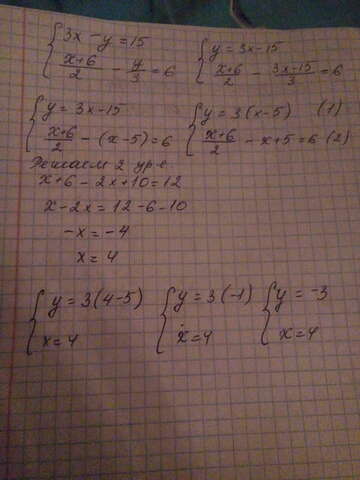 {3x - y = 15
{(x+6)/2 - y/3 = 6
{y = 3x - 15
{(x+6)/2 - (3x-15)/3 = 6
{y = 3x - 15
{(x+6)/2 - (x-5) = 6
{y = 3(x-5) (1)
{(x+6)/2 - x + 5 = 6 (2)
Решаем 2 ур-е
x + 6 - 2x + 10 = 12
x - 2x = 12 - 6 - 10
-x = -4
x = 4
{y = 3(4-5)
{x = 4
{y = 3(-1)
{x = 4
{y = -3
{x = 4